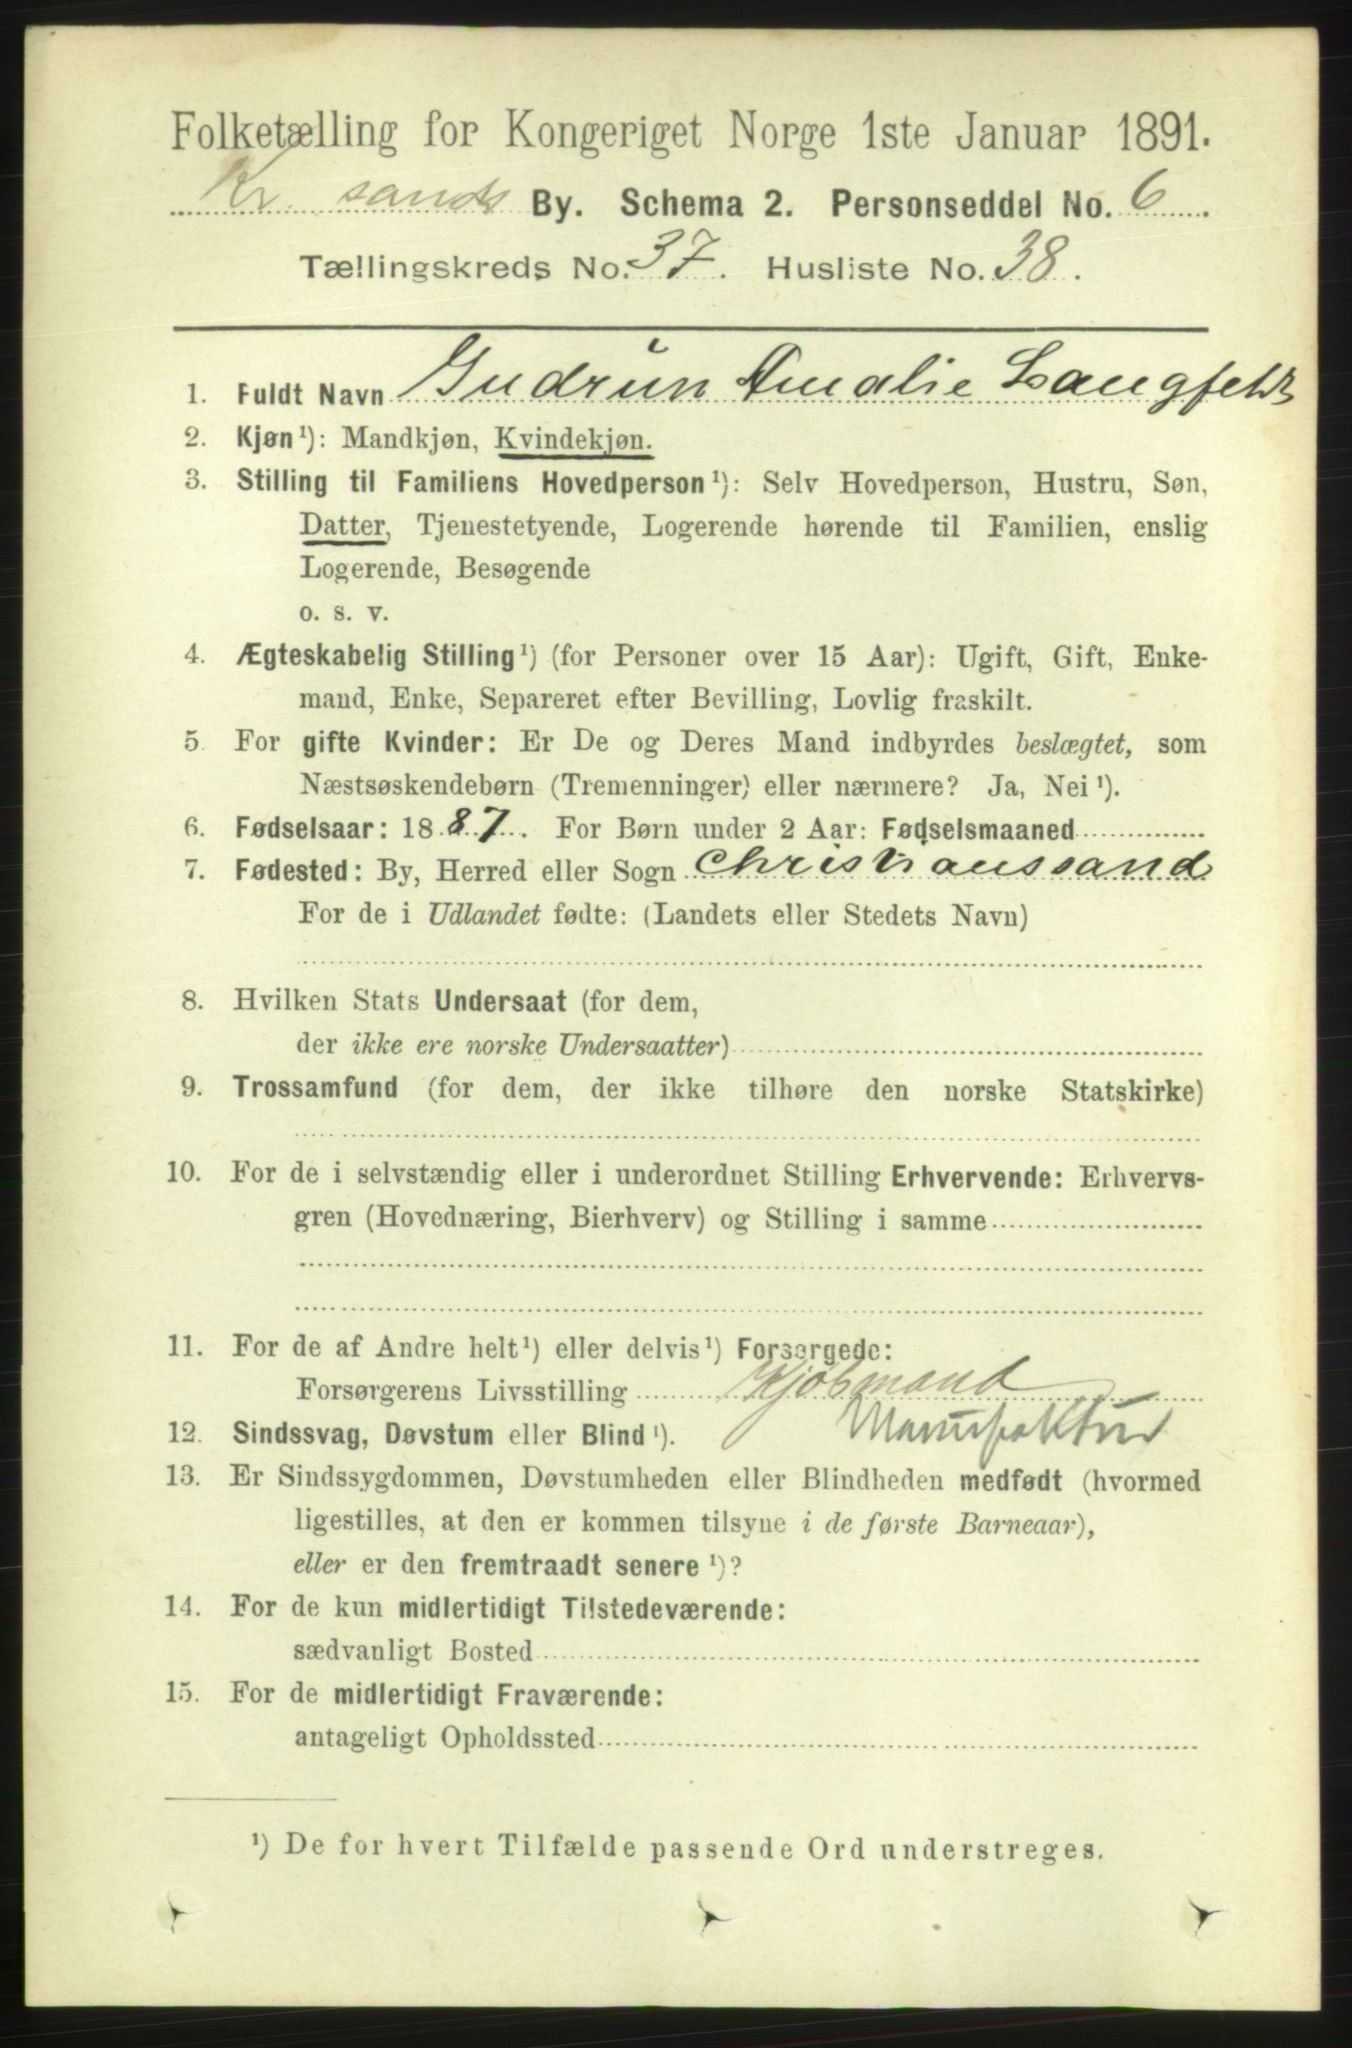 Folketælling for Kongeriget Norge 1ste Januar 1891.
Kr. sands By. Schema 2. Personseddel No. 6
Tællingskreds No. 37. Husliste No. 38.
1. Fuldt Navn Gudrun Amalie Langfeldt
2. Kjøn ¹): Mandkjøn, Kvindekjøn.
3. Stilling til Familiens Hovedperson ¹): Selv Hovedperson, Hustru, Søn,
Datter, Tjenestetyende, Logerende hørende til Familien, enslig
Logerende, Besøgende
o. s. v.
4. Ægteskabelig Stilling ¹) (for Personer over 15 Aar): Ugift, Gift, Enke-
mand, Enke, Separeret efter Bevilling, Lovlig fraskilt.
5. For gifte Kvinder: Er De og Deres Mand indbyrdes beslægtet, som
Næstsøskendebørn (Tremenninger) eller nærmere? Ja, Nei ¹).
6. Fødselsaar: 1887. For Børn under 2 Aar: Fødselsmaaned
7. Fødested: By, Herred eller Sogn Christianssand
For de i Udlandet fødte: (Landets eller Stedets Navn)
8. Hvilken Stats Undersaat (for dem,
der ikke ere norske Undersaatter)
9. Trossamfund (for dem, der ikke tilhøre den norske Statskirke)
10. For de i selvstændig eller i underordnet Stilling Erhvervende: Erhvervs-
gren (Hovednæring, Bierhverv) og Stilling i samme
11. For de af Andre helt ¹) eller delvis ¹) Forsørgede:
Forsørgerens Livsstilling Kjøbmand
Manufaktur
12. Sindssvag, Døvstum eller Blind ¹).
13. Er Sindssygdommen, Døvstumheden eller Blindheden medfødt (hvormed
ligestilles, at den er kommen tilsyne i de første Barneaar),
eller er den fremtraadt senere ¹)?
14. For de kun midlertidigt Tilstedeværende:
sædvanligt Bosted
15. For de midlertidigt Fraværende:
antageligt Opholdssted
¹) De for hvert Tilfælde passende Ord understreges.